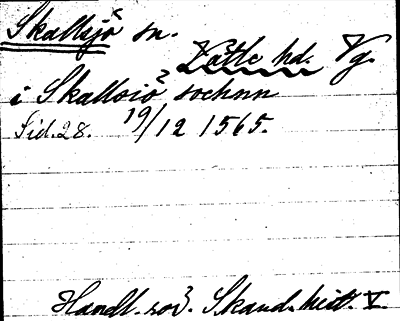 Skallsjö sn.
Vätle hd. Vg.
i Skallsiö sochnn
Sid. 28. 19/12 1565.
Handl. rör. Skand. hist. V.